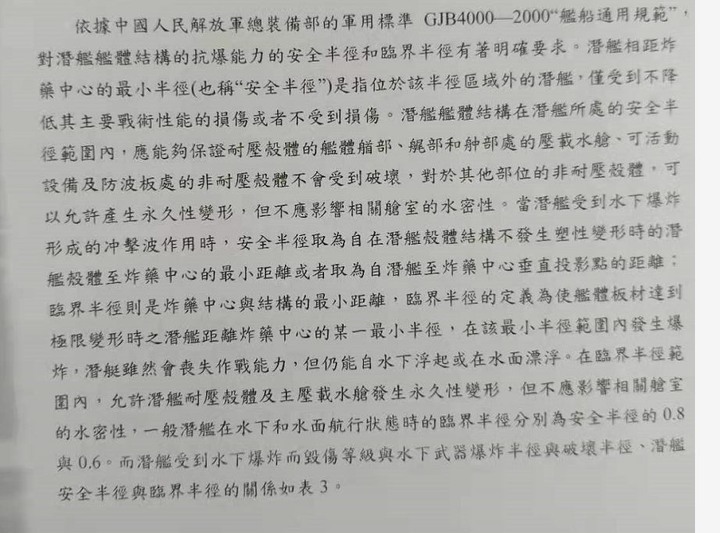 依據中國人民解放軍總裝備部的軍用標準 GJB4000—2000“艦船通用規範”，
對潛艦艦體結構的抗爆能力的安全半徑和臨界半徑有著明確要求。潛艦相距炸
藥中心的最小半徑(也稱“安全半徑”)是指位於該半徑區域外的潛艦，僅受到不降
低其主要戰術性能的損傷或者不受到損傷。潛艦艦體結構在潛艦所處的安全半
徑範圍內，應能夠保證耐壓殼體的艦體艏部、艉部和舯部處的壓載水艙、可活動
設備及防波板處的非耐壓殼體不會受到破壞，對於其他部位的非耐壓殼體，可
以允許產生永久性變形，但不應影響相關艙室的水密性。當潛艦受到水下爆炸
形成的冲擊波作用時，安全半徑取為自在潛艦殼體結構不發生塑性變形時的潛
艦殼體至炸藥中心的最小距離或者取為自潛艦至炸藥中心垂直投影點的距離；
臨界半徑則是炸藥中心與結構的最小距離，臨界半徑的定義為使艦體板材達到
極限變形時之潛艦距離炸藥中心的某一最小半徑，在該最小半徑範圍內發生爆
炸，潛艇雖然會喪失作戰能力，但仍能自水下浮起或在水面漂浮。在臨界半徑範
圍內，允許潛艦耐壓殼體及主壓載水艙發生永久性變形，但不應影響相關艙室
的水密性，一般潛艦在水下和水面航行狀態時的臨界半徑分別為安全半徑的 0.8
與 0.6。而潛艦受到水下爆炸而毀傷等級與水下武器爆炸半徑與破壞半徑、潛艦
安全半徑與臨界半徑的關係如表 3。